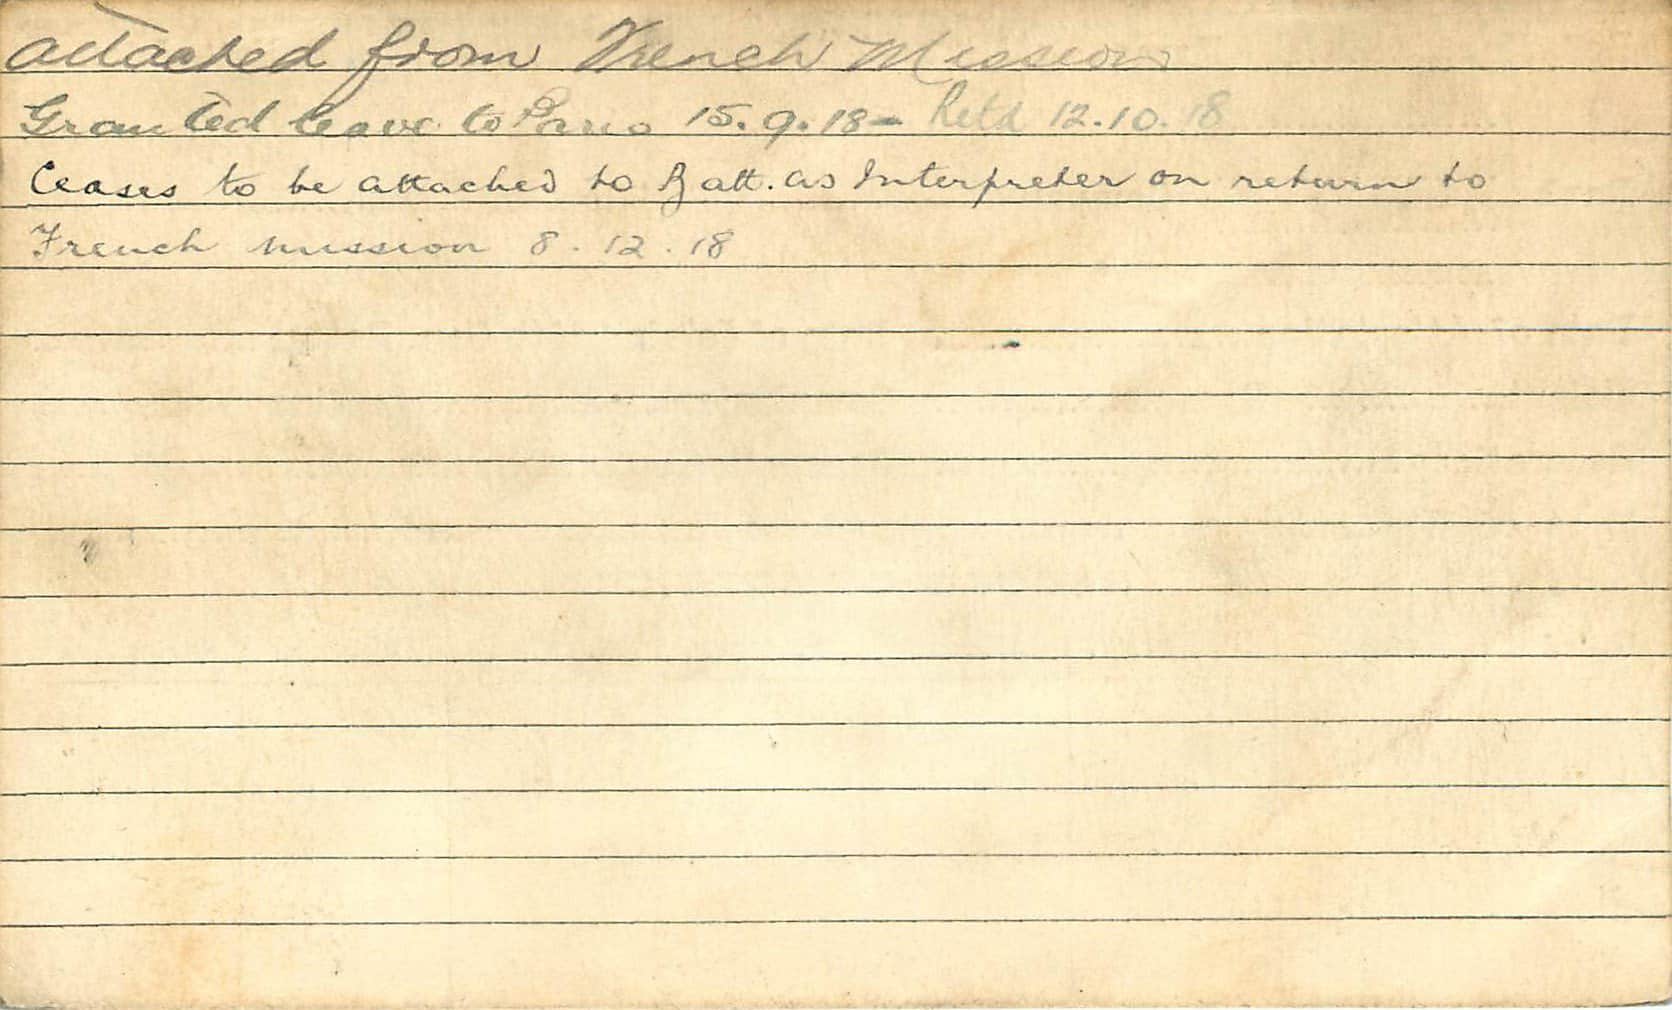 attached from French Mission
Granted leave to Paris 15.9.18 - Retd 12.10.18
Ceases to be attached to Batt. as Interpreter on return to
French mission 8.12.18